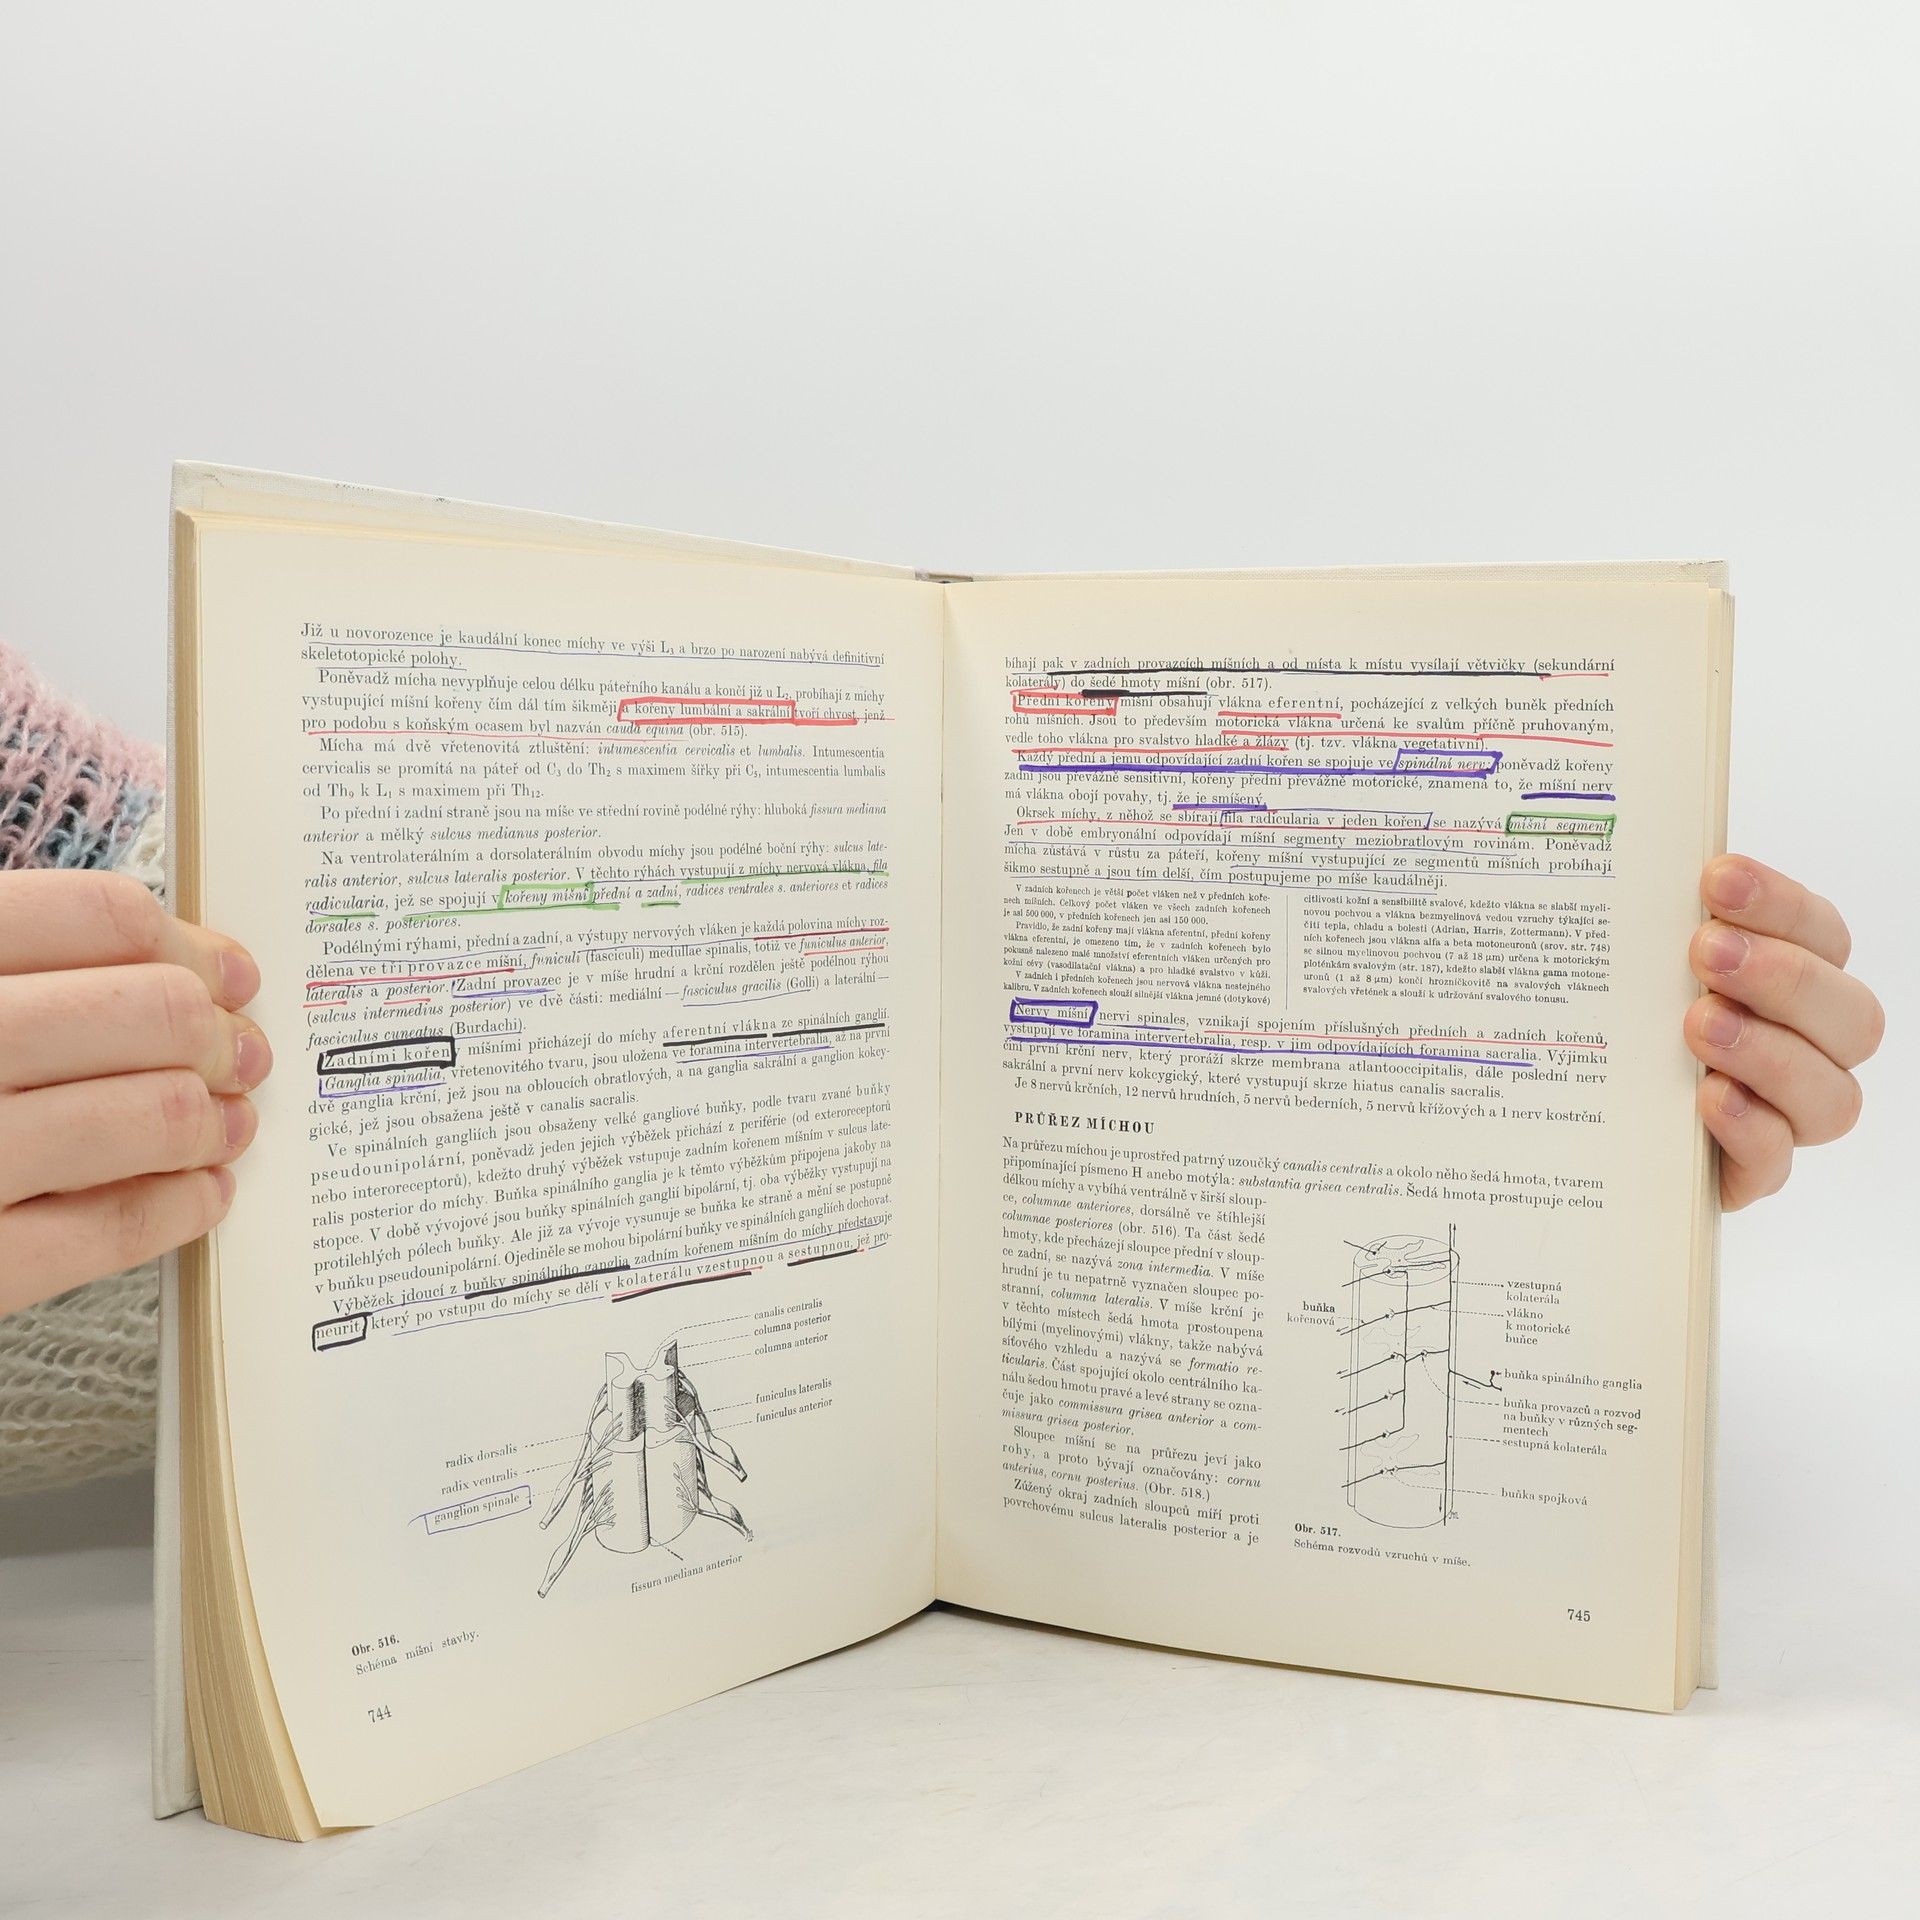 Již u novorozence je kaudální konec míchy ve výši L₃ a brzo po narození nabývá definitivní
skeletotopické polohy.
Poněvadž mícha nevyplňuje celou délku páteřního kanálu a končí již u L₂, probíhají z míchy
vystupující míšní kořeny čím dál tím šikměji a kořeny lumbální a sakrální tvoří chvost, jenž
pro podobu s koňským ocasem byl nazván cauda equina (obr. 515).
Mícha má dvě vřetenovitá ztluštění: intumescentia cervicalis et lumbalis. Intumescentia
cervicalis se promítá na páteř od C₃ do Th₂ s maximem šířky při C₅, intumescentia lumbalis
od Th₉ k L₁ s maximem při Th₁₂.
Po přední i zadní straně jsou na míše ve střední rovině podélné rýhy: hluboká fissura mediana
anterior a mělký sulcus medianus posterior.
Na ventrolaterálním a dorsolaterálním obvodu míchy jsou podélné boční rýhy: sulcus late-
ralis anterior, sulcus lateralis posterior. V těchto rýhách vystupují z míchy nervová vlákna, fila
radicularia, jež se spojují v kořeny míšní přední a zadní, radices ventrales s. anteriores et radices
dorsales s. posteriores.
Podélnými rýhami, přední a zadní, a výstupy nervových vláken je každá polovina míchy roz-
dělena ve tři provazce míšní, funiculi (fasciculi) medullae spinalis, totiž ve funiculus anterior,
lateralis a posterior. Zadní provazec je v míše hrudní a krční rozdělen ještě podélnou rýhou
(sulcus intermedius posterior) ve dvě části: mediální — fasciculus gracilis (Golli) a laterální —
fasciculus cuneatus (Burdachi).
Zadními kořeny míšními přicházejí do míchy aferentní vlákna ze spinálních ganglií.
Ganglia spinalia, vřetenovitého tvaru, jsou uložena ve foramina intervertebralia, až na první
dvě ganglia krční, jež jsou na obloucích obratlových, a na ganglia sakrální a ganglion kokcy-
gické, jež jsou obsažena ještě v canalis sacralis.
Ve spinálních gangliích jsou obsaženy velké gangliové buňky, podle tvaru zvané buňky
pseudounipolární, poněvadž jeden jejich výběžek přichází z periférie (od exteroreceptorů
nebo interoreceptorů), kdežto druhý výběžek vstupuje zadním kořenem míšním v sulcus late-
ralis posterior do míchy. Buňka spinálního ganglia je k těmto výběžkům připojena jakoby na
stopce. V době vývojové jsou buňky spinálních ganglií bipolární, tj. oba výběžky vystupují na
protilehlých pólech buňky. Ale již za vývoje vysunuje se buňka ke straně a mění se postupně
v buňku pseudounipolární. Ojediněle se mohou bipolární buňky ve spinálních gangliích dochovat.
Výběžek jdoucí z buňky spinálního ganglia zadním kořenem míšním do míchy představuje
neurit, který po vstupu do míchy se dělí v kolaterálu vzestupnou a sestupnou, jež pro-
canalis centralis
columna posterior
columna anterior
funiculus lateralis
funiculus anterior
radix dorsalis
radix ventralis
ganglion spinale
fissura mediana anterior
Obr. 516.
Schéma míšní stavby.
744
bíhají pak v zadních provazcích míšních a od místa k místu vysílají větvičky (sekundární
kolaterály) do šedé hmoty míšní (obr. 517).
Přední kořeny míšní obsahují vlákna eferentní, pocházející z velkých buněk předních
rohů míšních. Jsou to především motorická vlákna určená ke svalům příčně pruhovaným,
vedle toho vlákna pro svalstvo hladké a žlázy (tj. tzv. vlákna vegetativní).
Každý přední a jemu odpovídající zadní kořen se spojuje ve spinální nerv; poněvadž kořeny
zadní jsou převážně sensitivní, kořeny přední převážně motorické, znamená to, že míšní nerv
má vlákna obojí povahy, tj. že je smíšený.
Okrsek míchy, z něhož se sbírají fila radicularia v jeden kořen, se nazývá míšní segment.
Jen v době embryonální odpovídají míšní segmenty meziobratlovým rovinám. Poněvadž
mícha zůstává v růstu za páteří, kořeny míšní vystupující ze segmentů míšních probíhají
šikmo sestupně a jsou tím delší, čím postupujeme po míše kaudálněji.
V zadních kořenech je větší počet vláken než v předních koře-
nech míšních. Celkový počet vláken ve všech zadních kořenech
je asi 500 000, v předních kořenech jen asi 150 000.
Pravidlo, že zadní kořeny mají vlákna aferentní, přední kořeny
vlákna eferentní, je omezeno tím, že v zadních kořenech bylo
pokusně nalezeno malé množství eferentních vláken určených pro
kožní cévy (vasodilatační vlákna) a pro hladké svalstvo v kůži.
V zadních i předních kořenech jsou nervová vlákna nestejného
kalibru. V zadních kořenech slouží silnější vlákna jemné (dotykové)
citlivosti kožní a sensibilitě svalové, kdežto vlákna se slabší myeli-
novou pochvou a vlákna bezmyelinová vedou vzruchy týkající se-
čití tepla, chladu a bolesti (Adrian, Harris, Zottermann). V před-
ních kořenech jsou vlákna alfa a beta motoneuronů (srov. str. 748)
se silnou myelinovou pochvou (7 až 18 μm) určena k motorickým
ploténkám svalovým (str. 187), kdežto slabší vlákna gama motone-
uronů (1 až 8 μm) končí hrozníčkovitě na svalových vláknech
svalových vřetének a slouží k udržování svalového tonusu.
Nervy míšní, nervi spinales, vznikají spojením příslušných předních a zadních kořenů,
vystupují ve foramina intervertebralia, resp. v jim odpovídajících foramina sacralia. Výjimku
činí první krční nerv, který proráží skrze membrana atlantooccipitalis, dále poslední nerv
sakrální a první nerv kokcygický, které vystupují skrze hiatus canalis sacralis.
Je 8 nervů krčních, 12 nervů hrudních, 5 nervů bederních, 5 nervů křížových a 1 nerv kostrční.
PRŮŘEZ MÍCHOU
Na průřezu míchou je uprostřed patrný uzoučký canalis centralis a okolo něho šedá hmota, tvarem
připomínající písmeno H anebo motýla: substantia grisea centralis. Šedá hmota prostupuje celou
délkou míchy a vybíhá ventrálně v širší sloup-
ce, columnae anteriores, dorsálně ve štíhlejší
columnae posteriores (obr. 516). Ta část šedé
hmoty, kde přecházejí sloupce přední v sloup-
ce zadní, se nazývá zona intermedia. V míše
hrudní je tu nepatrně vyznačen sloupec po-
stranní, columna lateralis. V míše krční je
v těchto místech šedá hmota prostoupena
bílými (myelinovými) vlákny, takže nabývá
síťového vzhledu a nazývá se formatio re-
ticularis. Část spojující okolo centrálního ka-
nálu šedou hmotu pravé a levé strany se ozna-
čuje jako commissura grisea anterior a com-
missura grisea posterior.
Sloupce míšní se na průřezu jeví jako
rohy, a proto bývají označovány: cornu
anterius, cornu posterius. (Obr. 518.)
Zúžený okraj zadních sloupců míří proti
povrchovému sulcus lateralis posterior a je
buňka
kořenová
vzestupná
kolaterála
vlákno
k motorické
buňce
buňka spinálního ganglia
buňka provazců a rozvod
na buňky v různých seg-
mentech
sestupná kolaterála
buňka spojková
Obr. 517.
Schéma rozvodů vzruchů v míše.
745